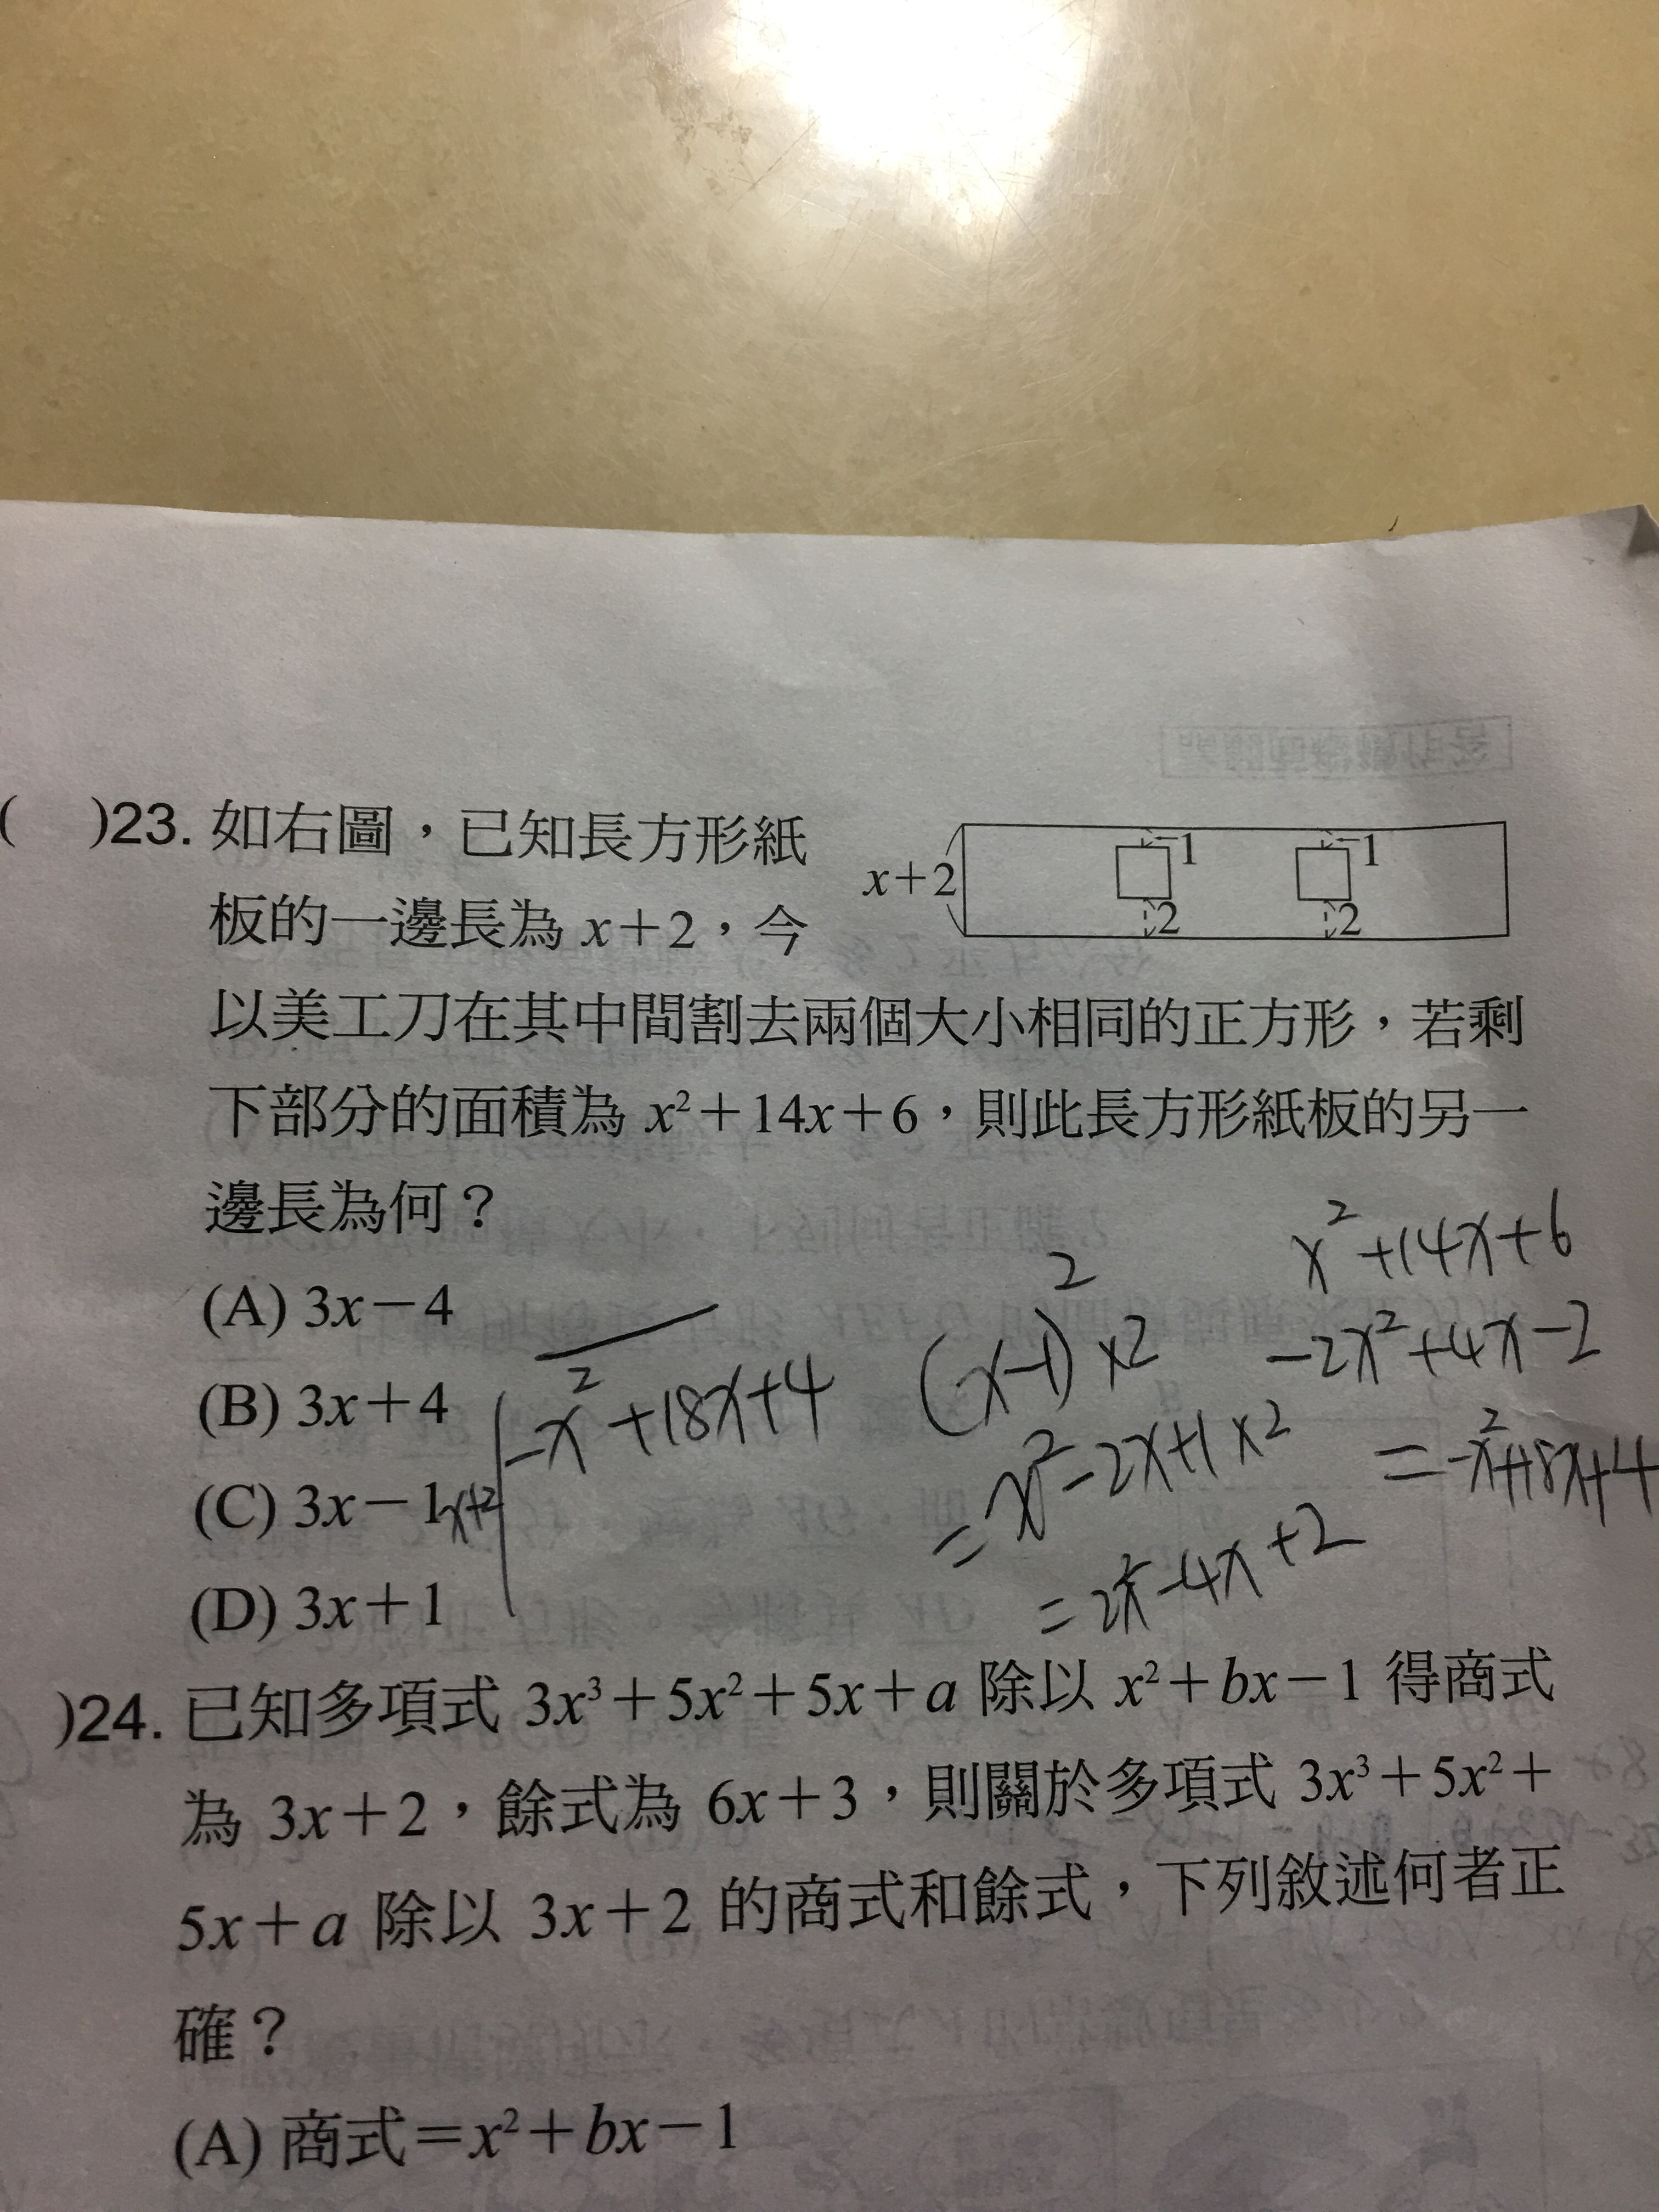 ( )23. 如右圖，已知長方形紙
板的一邊長為 x＋2，今
x＋2
1
1
2
2
以美工刀在其中間割去兩個大小相同的正方形，若剩
下部分的面積為 x²＋14x＋6，則此長方形紙板的另一
邊長為何？
(A) 3x－4
(B) 3x＋4
(C) 3x－1
(D) 3x＋1
x+2
-x²+18x+4
(x-1)²×2
=x²-2x+1×2
=2x²-4x+2
x²+14x+6
-2x²+4x-2
=-x²+18x+4
)24. 已知多項式 3x³＋5x²＋5x＋a 除以 x²＋bx－1 得商式
為 3x＋2，餘式為 6x＋3，則關於多項式 3x³＋5x²＋
5x＋a 除以 3x＋2 的商式和餘式，下列敘述何者正
確？
(A) 商式＝x²＋bx－1